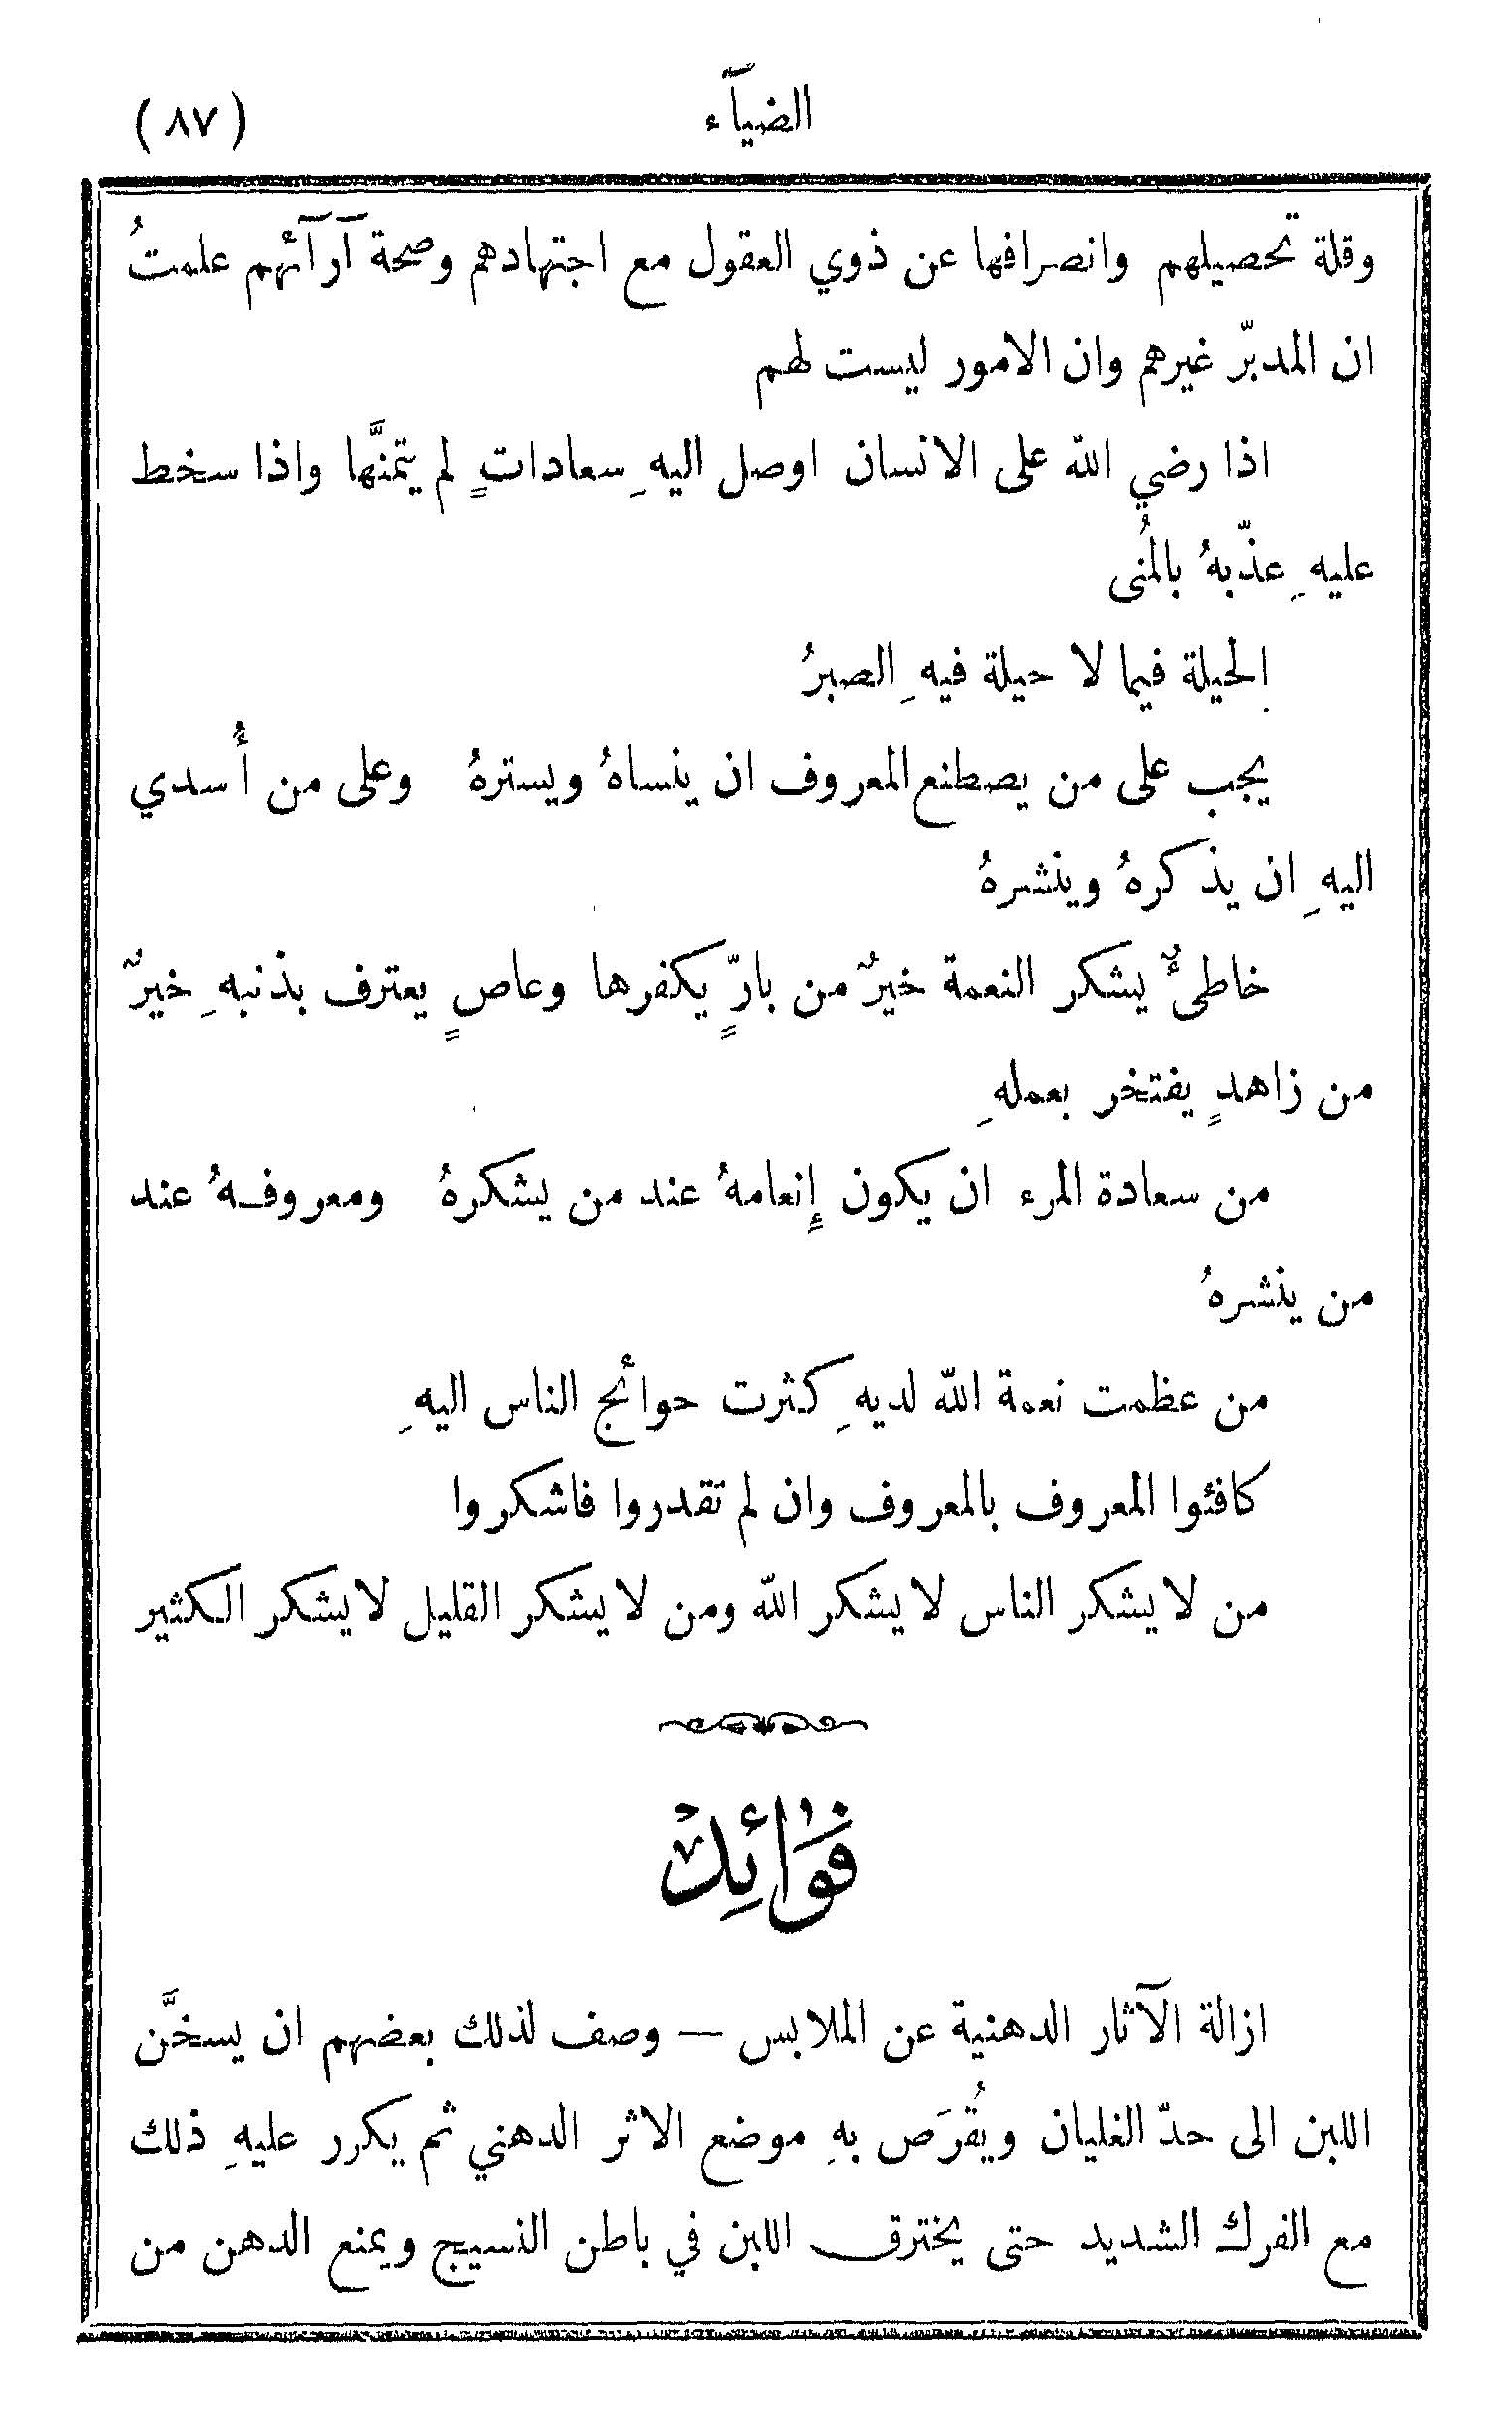 الضيآء
(٨٧)
وقلة تحصيلهم وانصرافها عن ذوي العقول مع اجتهادهم وصحة آرآئهم علمتُ
ان المدبّر غيرهم وان الامور ليست لهم
اذا رضي الله على الانسان اوصل اليهِ سعاداتٍ لم يتمنَّها واذا سخط
عليهِ عذّبهُ بالمُنى
الحيلة فيما لا حيلة فيهِ الصبرُ
يجب على من يصطنع المعروف ان ينساهُ ويسترهُ وعلى من أُسدي
اليهِ ان يذكرهُ وينشرهُ
خاطئٌ يشكر النعمة خيرٌ من بارٍّ يكفرها وعاصٍ يعترف بذنبهِ خيرٌ
من زاهدٍ يفتخر بعملهِ
من سعادة المرء ان يكون إِنعامهُ عند من يشكرهُ ومعروفهُ عند
من ينشرهُ
من عظمت نعمة الله لديهِ كثرت حوائج الناس اليهِ
كافئوا المعروف بالمعروف وان لم تقدروا فاشكروا
من لا يشكر الناس لا يشكر الله ومن لا يشكر القليل لا يشكر الكثير
فَوَائِد
ازالة الآثار الدهنية عن الملابس — وصف لذلك بعضهم ان يسخَّن
اللبن الى حدّ الغليان ويُقرَص بهِ موضع الاثر الدهني ثم يكرر عليهِ ذلك
مع الفرك الشديد حتى يخترق اللبن في باطن النسيج ويمنع الدهن من